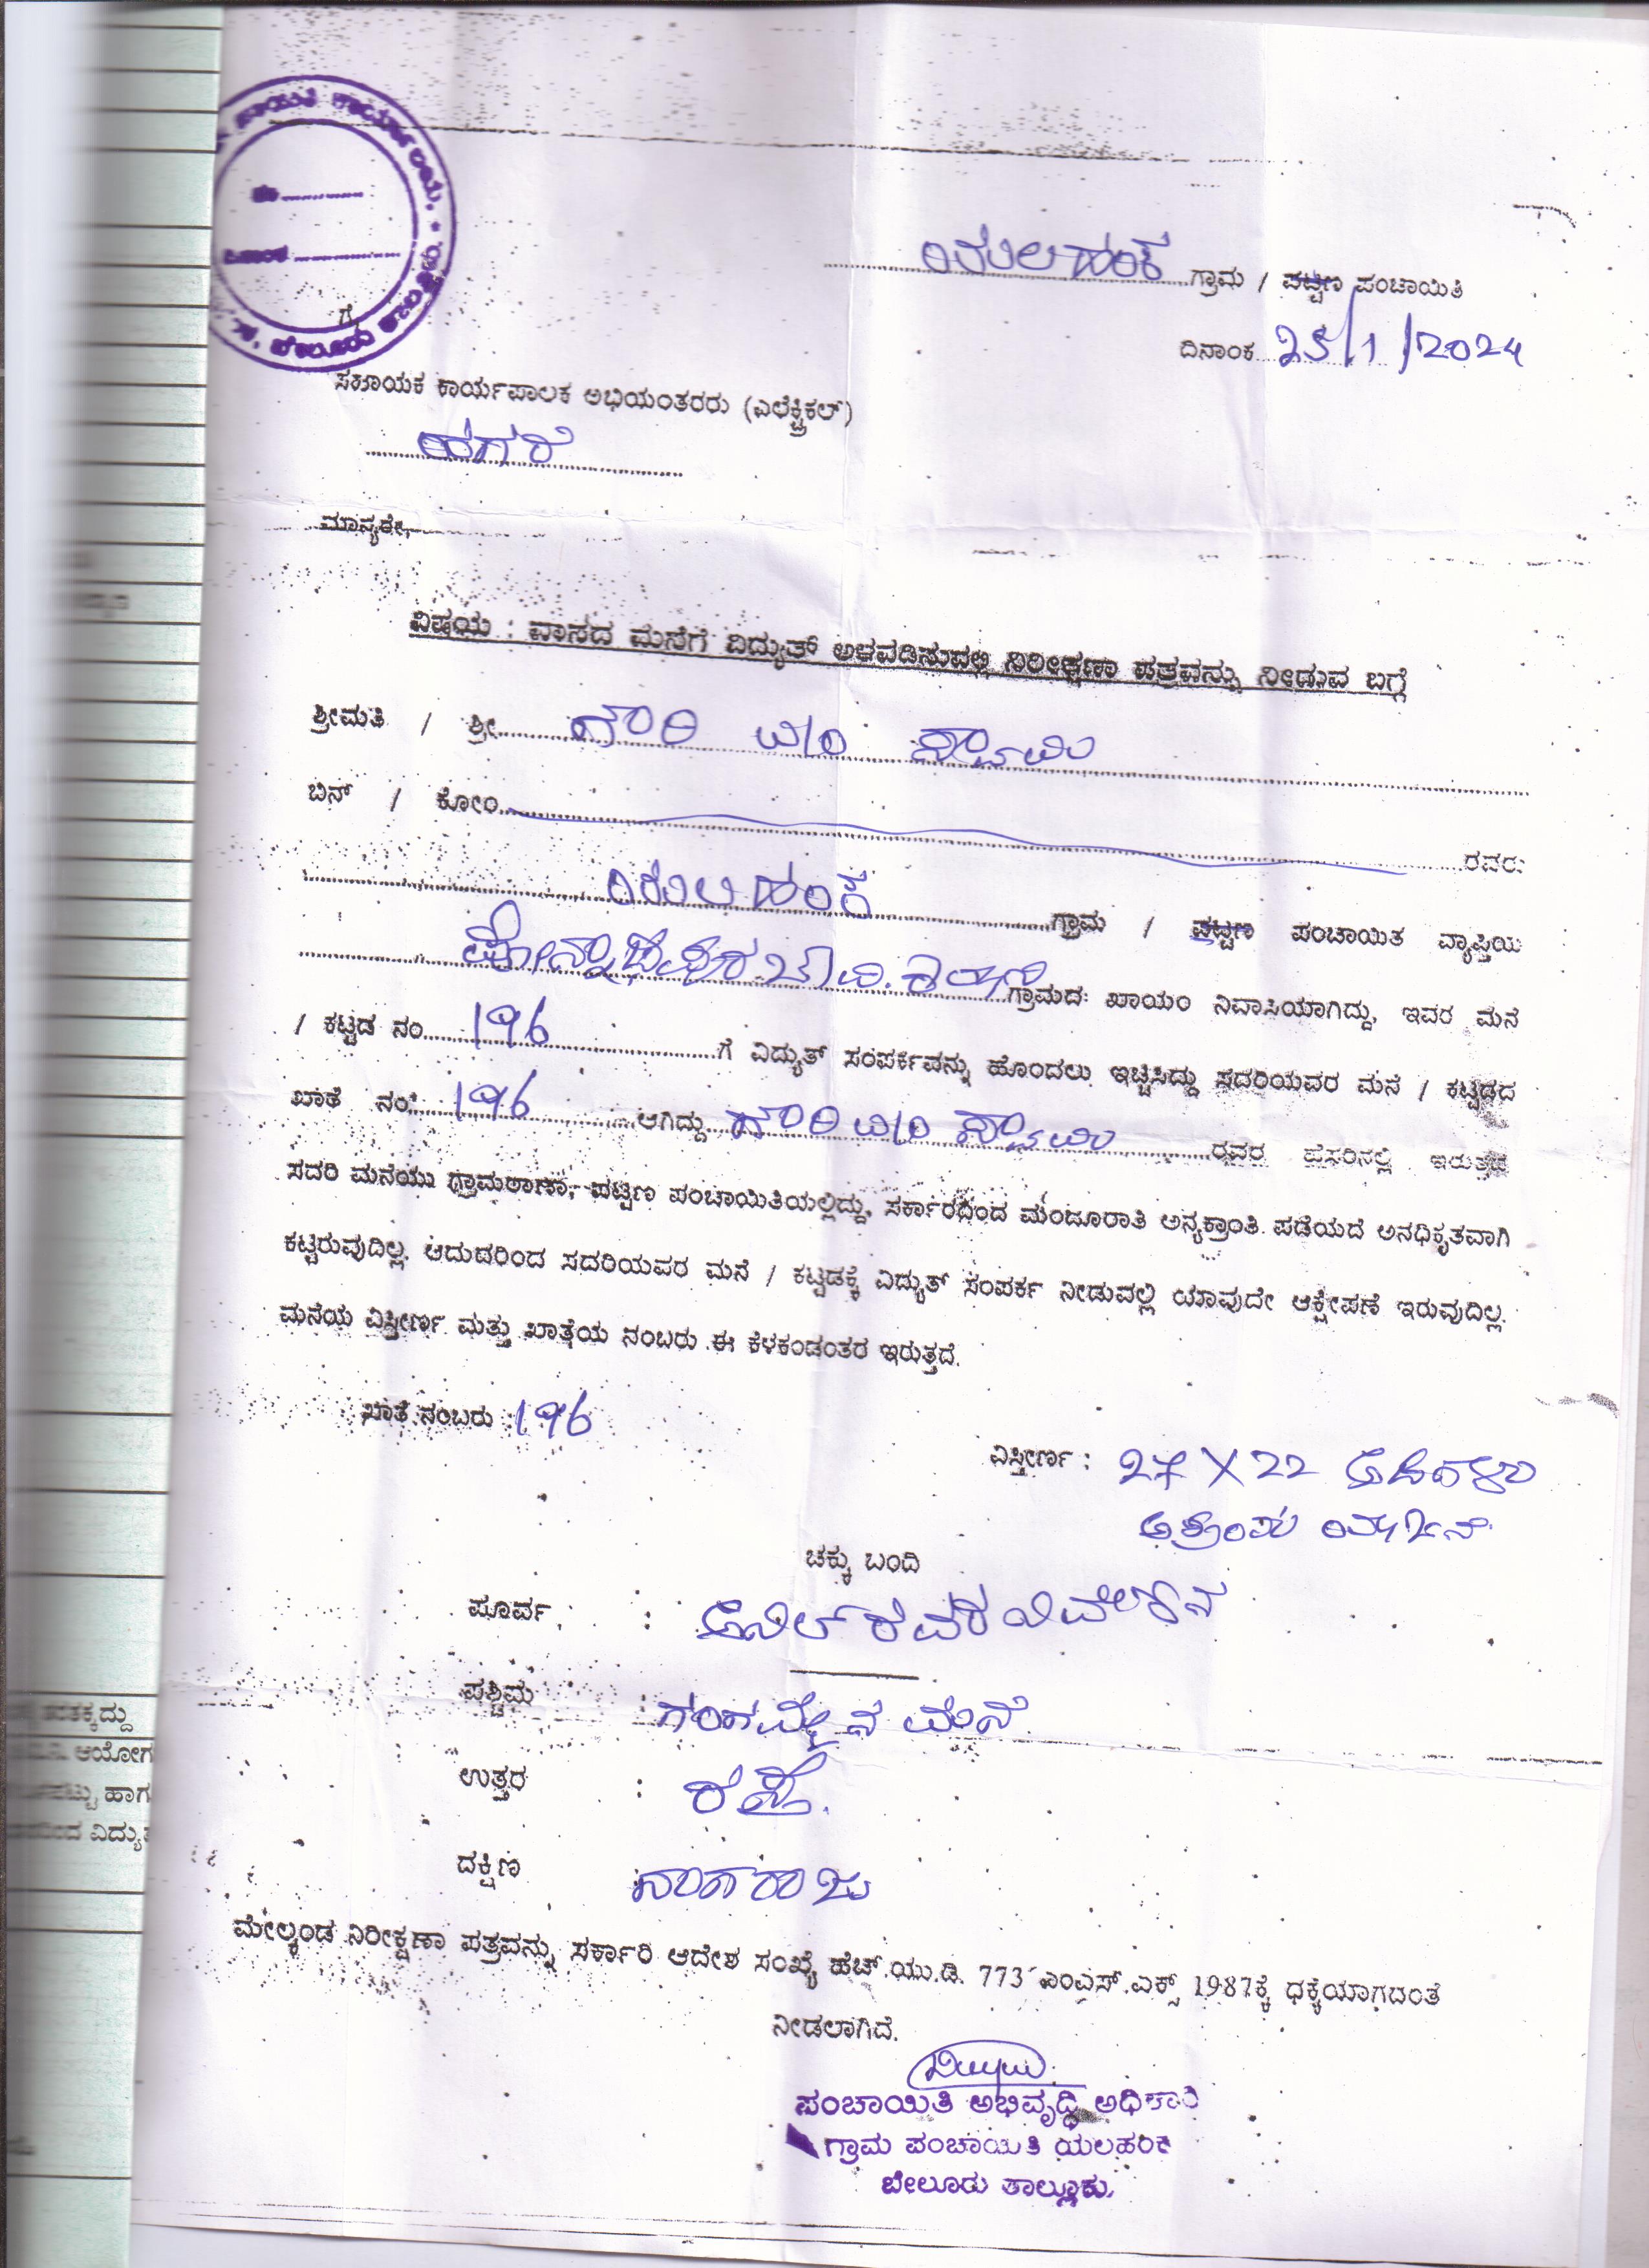 ಯಲಹಂಕ ಗ್ರಾಮ / ಪಟ್ಟಣ ಪಂಚಾಯಿತಿ
ದಿನಾಂಕ 25/1/2024
ಗೆ,
ಸಹಾಯಕ ಕಾರ್ಯಪಾಲಕ ಅಭಿಯಂತರರು (ಎಲೆಕ್ಟ್ರಿಕಲ್)
ಹಗರೆ
ಮಾನ್ಯರೇ,
ವಿಷಯ : ವಾಸದ ಮನೆಗೆ ವಿದ್ಯುತ್ ಅಳವಡಿಸುವಲ್ಲಿ ನಿರೀಕ್ಷಣಾ ಪತ್ರವನ್ನು ನೀಡುವ ಬಗ್ಗೆ
ಶ್ರೀಮತಿ / ಶ್ರೀ ಗೌರಿ W/o ಸ್ವಾಮಿ
ಬಿನ್ / ಕೋಂ ರವರು
ಯಲಹಂಕ ಗ್ರಾಮ / ಪಟ್ಟಣ ಪಂಚಾಯಿತ ವ್ಯಾಪ್ತಿಯ
ಗ್ರಾಮದ ಖಾಯಂ ನಿವಾಸಿಯಾಗಿದ್ದು, ಇವರ ಮನೆ
/ ಕಟ್ಟಡ ನಂ 196 ಗೆ ವಿದ್ಯುತ್ ಸಂಪರ್ಕವನ್ನು ಹೊಂದಲು ಇಚ್ಚಿಸಿದ್ದು ಸದರಿಯವರ ಮನೆ / ಕಟ್ಟಡದ
ಖಾತೆ ನಂ 196 ಆಗಿದ್ದು ಗೌರಿ W/o ಸ್ವಾಮಿ ರವರ ಹೆಸರಿನಲ್ಲಿ ಇರುತ್ತದೆ
ಸದರಿ ಮನೆಯು ಗ್ರಾಮಠಾಣಾ, ಪಟ್ಟಣ ಪಂಚಾಯಿತಿಯಲ್ಲಿದ್ದು, ಸರ್ಕಾರದಿಂದ ಮಂಜೂರಾತಿ ಅನ್ಯಕ್ರಾಂತಿ ಪಡೆಯದೆ ಅನಧಿಕೃತವಾಗಿ
ಕಟ್ಟಿರುವುದಿಲ್ಲ. ಆದುದರಿಂದ ಸದರಿಯವರ ಮನೆ / ಕಟ್ಟಡಕ್ಕೆ ವಿದ್ಯುತ್ ಸಂಪರ್ಕ ನೀಡುವಲ್ಲಿ ಯಾವುದೇ ಆಕ್ಷೇಪಣೆ ಇರುವುದಿಲ್ಲ.
ಮನೆಯ ವಿಸ್ತೀರ್ಣ ಮತ್ತು ಖಾತೆಯ ನಂಬರು ಈ ಕೆಳಕಂಡಂತರ ಇರುತ್ತದೆ.
ಖಾತೆ ನಂಬರು 196
ವಿಸ್ತೀರ್ಣ : 27 X 22 ಅಡಿಗಳು
ಚಕ್ಕು ಬಂದಿ
ಪೂರ್ವ : ಅನಿಲ್ ರವರ ನಿವೇಶನ
ಪಶ್ಚಿಮ : ಗಂಗಮ್ಮನ ಮನೆ
ಉತ್ತರ : ರಸ್ತೆ.
ದಕ್ಷಿಣ : ನಾಗರಾಜು
ಮೇಲ್ಕಂಡ ನಿರೀಕ್ಷಣಾ ಪತ್ರವನ್ನು ಸರ್ಕಾರಿ ಆದೇಶ ಸಂಖ್ಯೆ ಹೆಚ್.ಯು.ಡಿ. 773 ಎಂಎಸ್.ಎಕ್ಸ್ 1987ಕ್ಕೆ ಧಕ್ಕೆಯಾಗದಂತೆ
ನೀಡಲಾಗಿದೆ.
ಪಂಚಾಯಿತಿ ಅಭಿವೃದ್ಧಿ ಅಧಿಕಾರಿ
ಗ್ರಾಮ ಪಂಚಾಯಿತಿ ಯಲಹಂಕ
ಬೇಲೂರು ತಾಲ್ಲೂಕು.